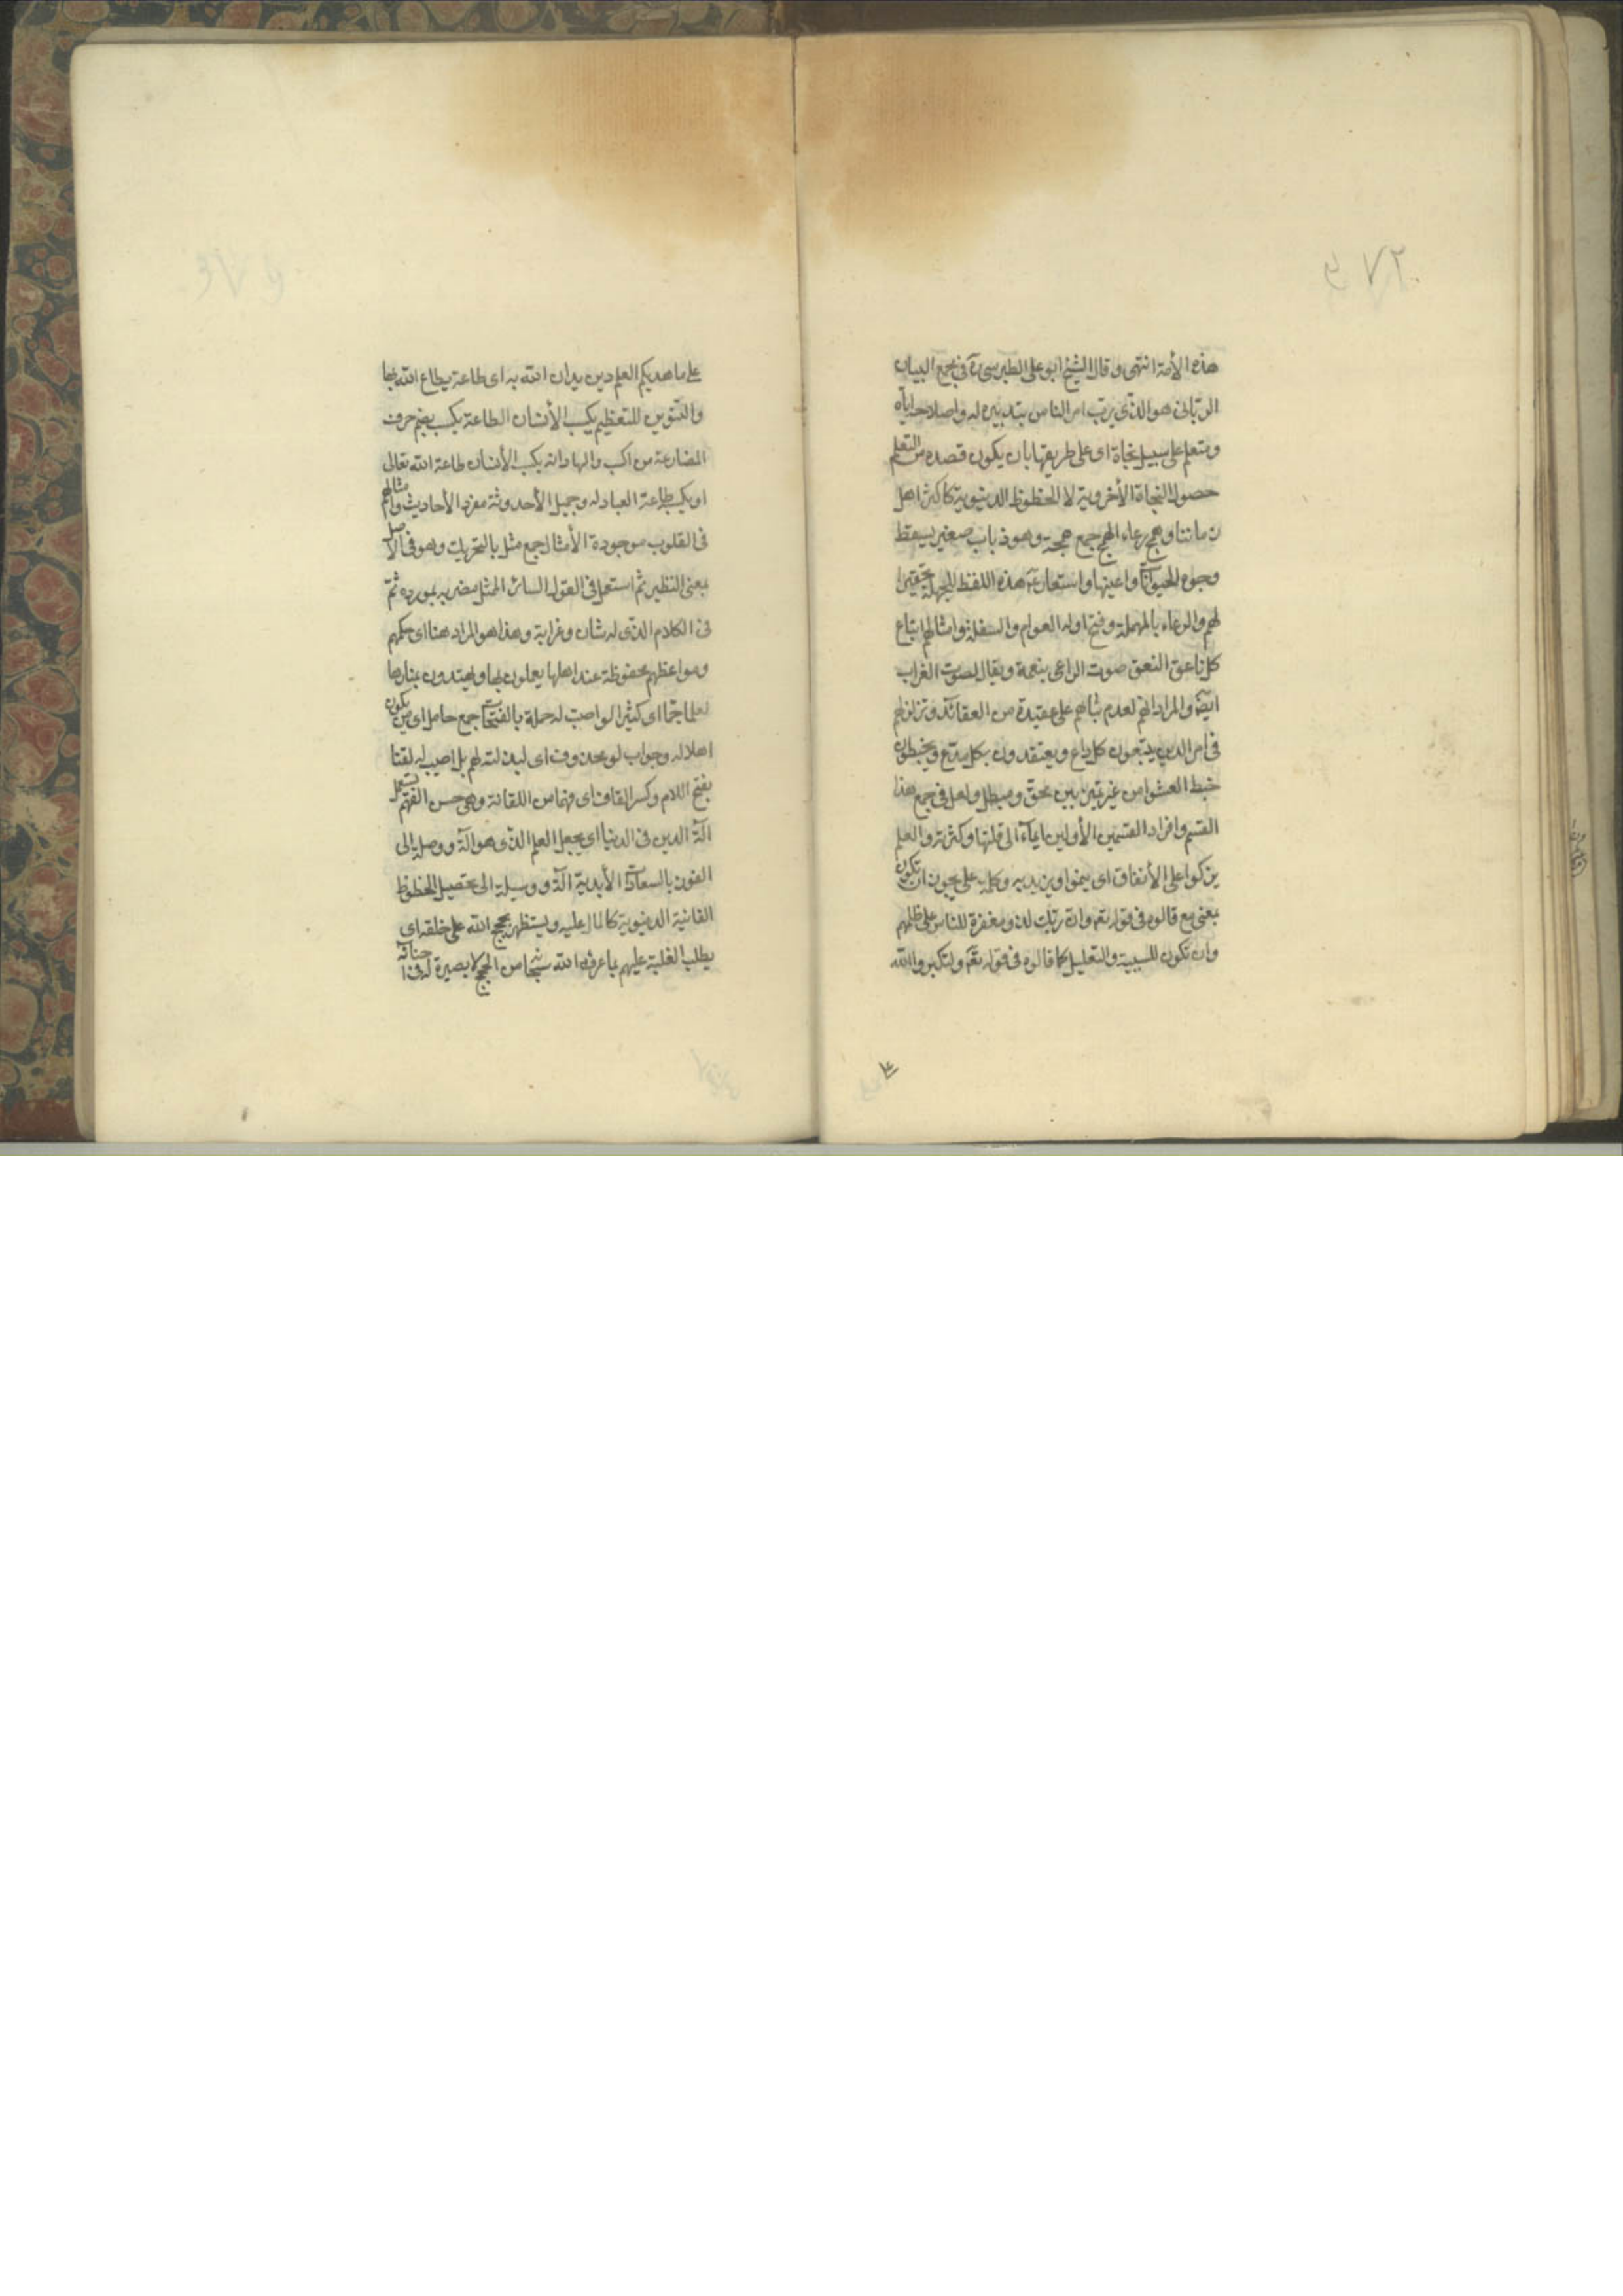 هذه الأمة انتهى وقال الشيخ ابو على الطبرسى ره فى مجمع البيان
الربانى هو الذى يرب امر الناس بتدبيره له واصلاحه اياه
ومتعلم على سبيل نجاة اى على طريقها بان يكون قصده من التعلم
حصول النجاة الأخروية لا الحظوظ الدنيوية كأكثر اهل
زماننا وهمج رعاء الهمج جمع همجة وهو ذباب صغير يسقط
وجوه الحيوانات واعينها واستعار ع هذه اللفظ للجهلة تحقيرا
لهم والرعاء بالمهملة وفتح اوله العوام والسفلة وامثالهم اتباع
كل ناعق النعق صوت الراعى بغنمه ويقال لصوت الغراب
ايضا والمراد انهم لعدم ثباتهم على عقيدة من العقائد وتزلزلهم
فى امر الدين يتبعون كل داع ويعتقدون بكل مدع ويخبطون
خبط العشوا من غير تميز بين محق ومبطل ولعل فى جمع هذا
القسم وافراد القسمين الأولين ايماء الى قلتهما وكثرته والعلم
يزكوا على الأنفاق اى ينموا ويزيد به وكلمة على يجوز ان تكون
بمعنى مع قالوه فى قوله تعم وان ربك لذو مغفرة للناس على ظلمهم
وان تكون للسببية والتعليل كما قالوه فى قوله تعم ولتكبروا الله
على
على ما هديكم العلم دين يدان الله به اى طاعة يطاع الله بها
والتنوين للتعظيم يكسب الأنسان الطاعة يكسب بضم حرف
المضارعة من اكسب والمراد انه يكسب الأنسان طاعة الله تعالى
او يكسب طاعة العباد له وجميل الأحدوثة مفرد الأحاديث وامثالهم
فى القلوب موجودة الأمثال جمع مثل بالتحريك وهو فى الأصل
بمعنى النظير ثم استعمل فى القول السائر الممثل مضربه بمورده ثم
فى الكلام الذى له شان وغرابة وهذا هو المراد هنا اى حكمهم
ومواعظهم محفوظة عند اهلها يعملون بها ويهتدون بمنارها
لعلما جما اى كثيرا لو اصبت له حملة بالفتحات جمع حامل اى من يكون
اهلا له وجواب لو محذوف اى لبذلته لهم بل اصيب له لقنا
بفتح اللام وكسر القاف اى فهما من اللقانة وهى حسن الفهم يستعمل
آلة الدين فى الدنيا اى يجعل العلم الذى هو آلة ووصلة الى
الفوز بالسعادات الأبدية آلة ووسيلة الى تحصيل الحظوظ
الفانية الدنيوية كالمال عليه ويستظهر بحجج الله على خلقه اى
يطلب الغلبة عليهم بما عرفه الله سبحانه من الحجج لا بصيرة له فى احنائه